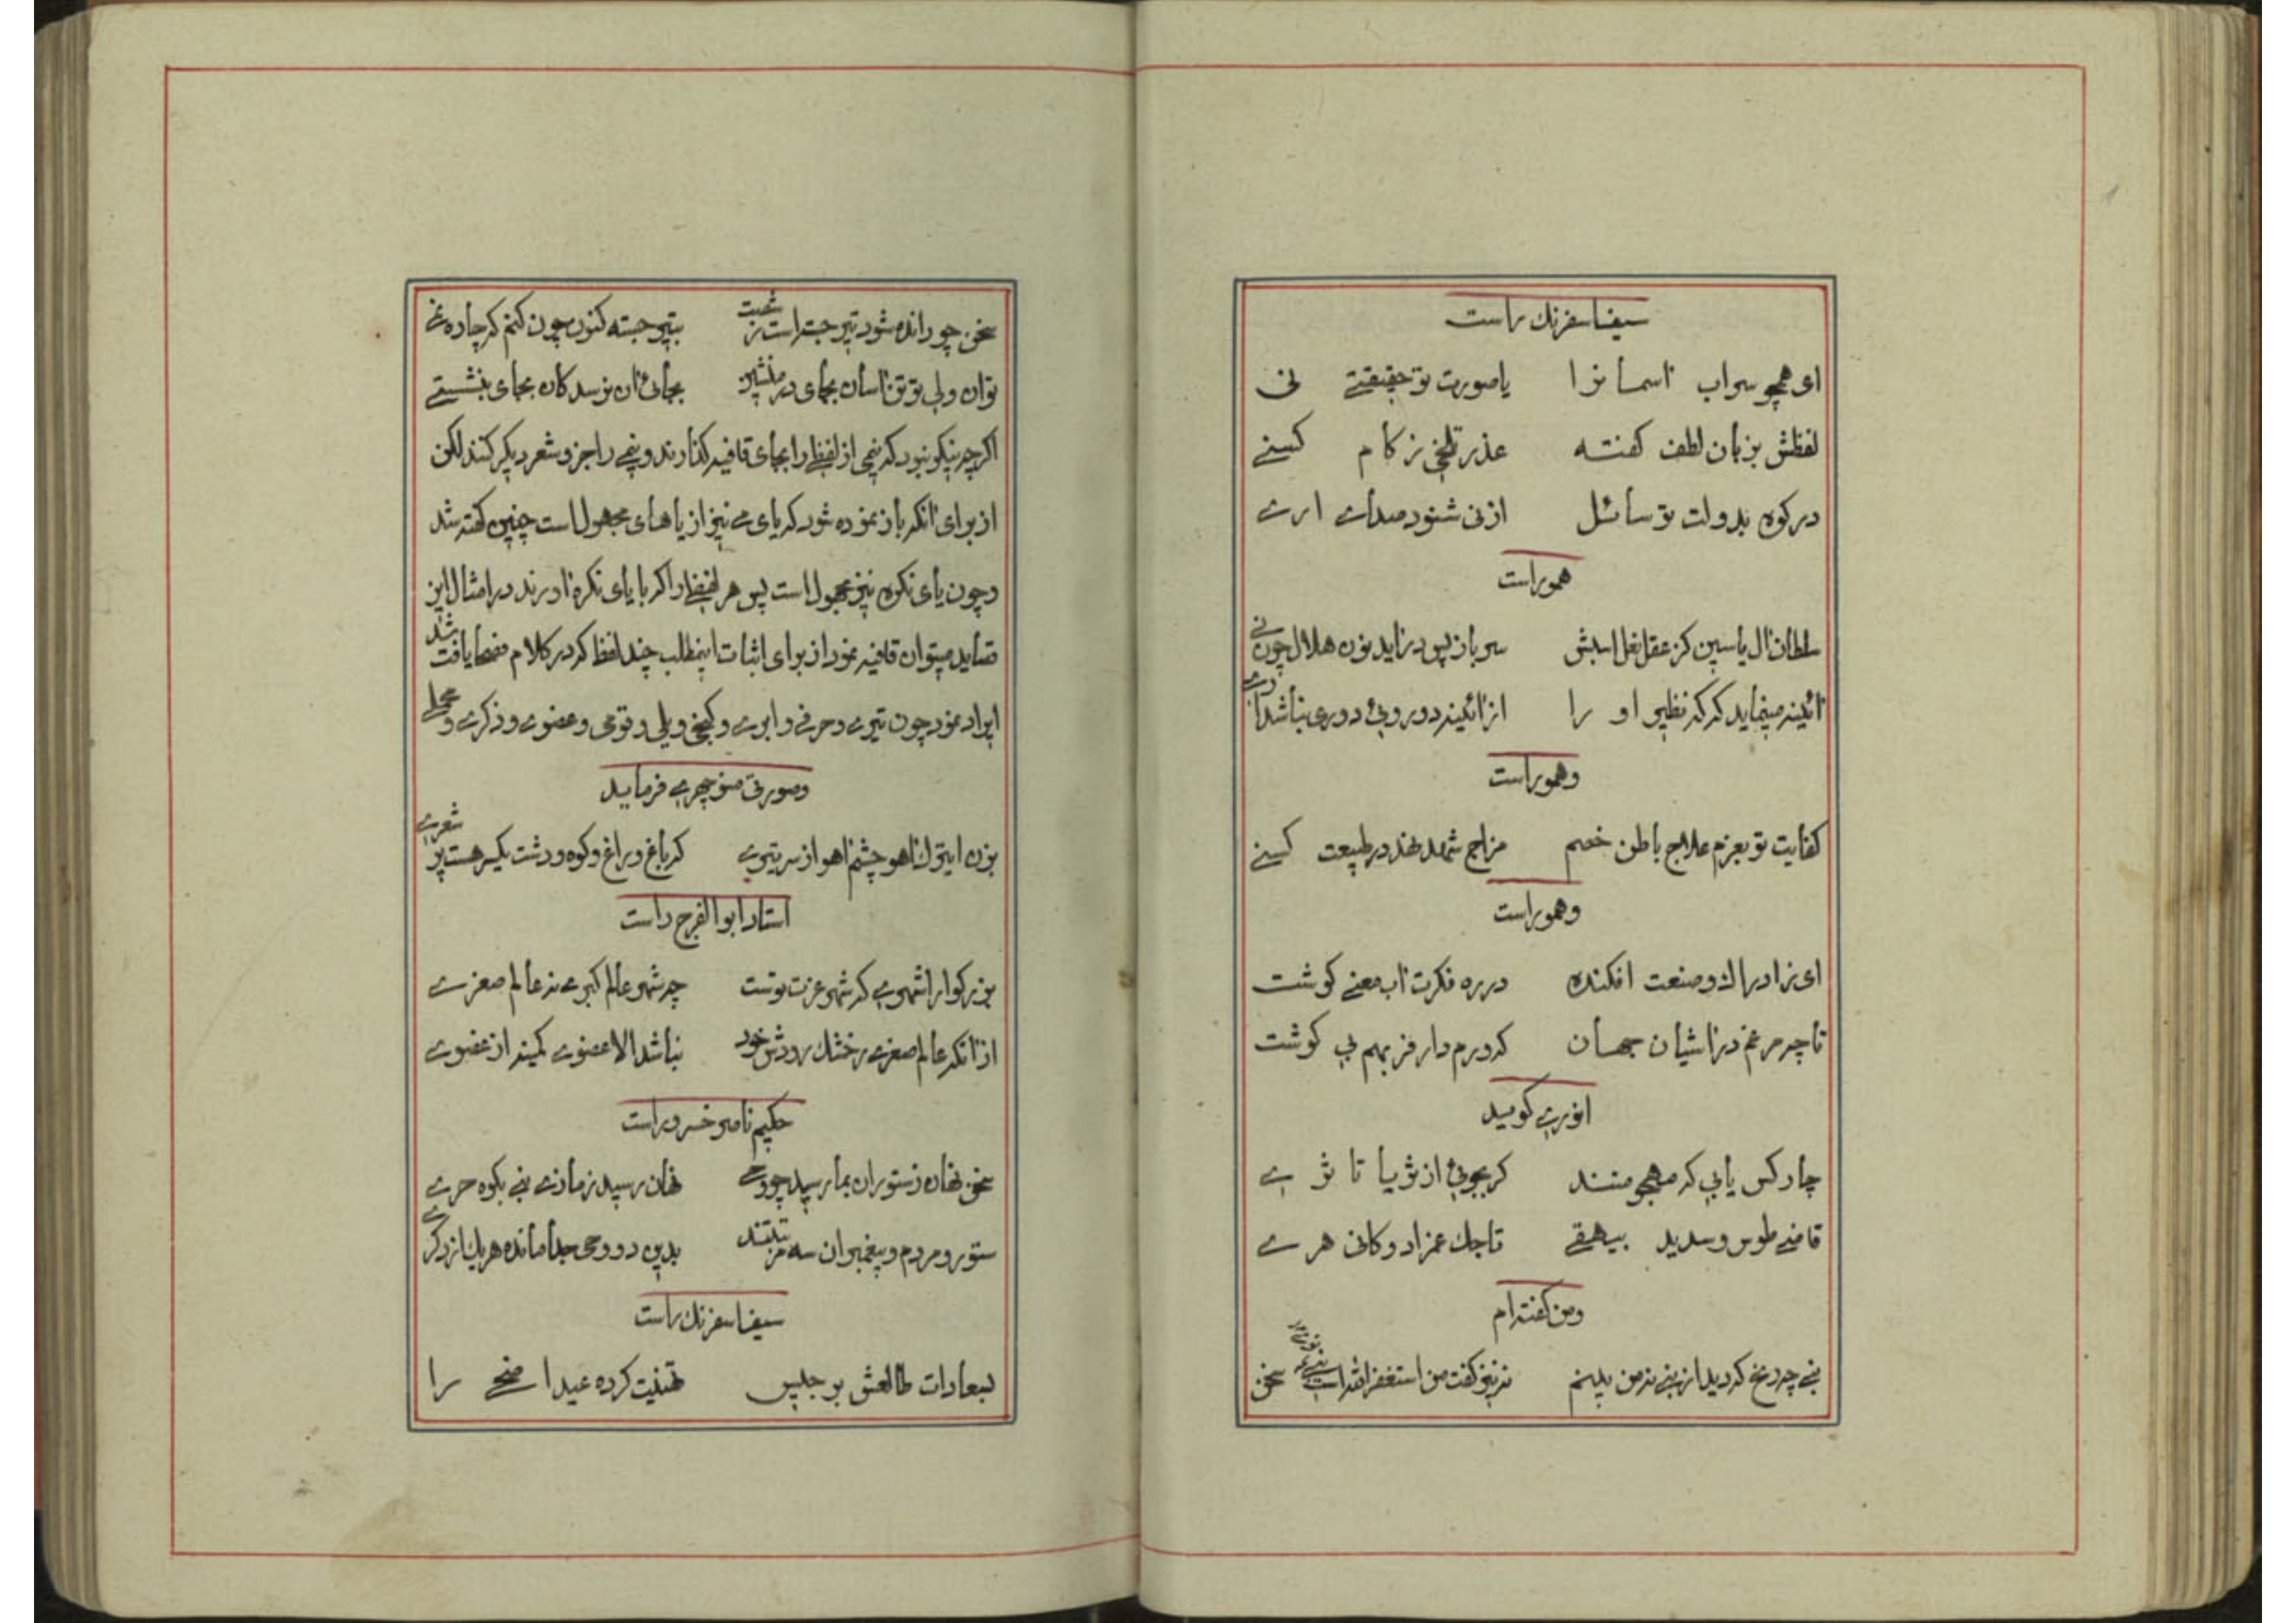 سیف اسفرنك راست
ای همچو سراب اسمانرا یا صورت تو حقیقتے نی
لفظش بزبان لطف کفته عذر تلخی ز کام کسنے
در کوه بدولت تو سائل از نی شنود صداے ارے
همو راست
سلطان ال یاسین کز عقل نعل اسبش سر باز پس در ناید نون هلال چون نے
ائینه مینماید که که نظیر او را از ائینه دو روئی دوری نباشد
وهمو راست
کفایت تو بعزم علاج باطن خصم مزاج شهد نهد در طبیعت کسنے
وهمو راست
ای نزاد راك و صنعت افکنده در ره فکرت اب معنے کوشت
تا چه مرغم در اشیان جهان که ورم دار فربهم بی کوشت
انورے کوید
چار کس یابی که همچو منند کر بجوئی از ثریا تا ثرے
قاضے طوس و سدید بیهقے تاجك عمزاد و کانی هرے
ومن کفته ام
سخن
سخن چو رانده شود تیر جسته است ز شست بتیر جسته کنون چون کنم که چاره نے
توان ولی تو توناسان بجای در منشین بجائی ان نرسد کان بجای بنشستے
اکرچه نیکو نبود که نیمی از لفظے را بجای قافیه کذارند و نیمے را جزو شعر دیکر کنند لکن
از برای انکه باز نموده شود که یای مے نیز از یاهای مجهول است چنین کفته شد
و چون یای نکره نیز مجهول است پس هر لفظے را که با یای نکره اورند در امثال این
قصاید میتوان قافیه نمود از برای اثبات اینمطلب چند لفظ که در کلام فصحا یافت شد
ایراد نمود چون تیرے و حرفے و ابرے و کنجی و یلی و قومی و عضوے و ذکرے و
وصورتی منوچهرے فرماید
بزن ایترك اهو چشم اهو از سر تیرے که باغ و راغ و کوه و دشت یکسر هست پر شعرے
استاد ابو الفرج راست
بزرکوارا شهرے که شهر عزت توست چه شهر عالم کبرے نه عالم صغرے
از انکه عالم صغرے رخشك رودش خود نباشد الا عضوے کمینه از عضوے
حکیم ناصر خسرو راست
سخن نهان ز ستوران بما رسید چو وحے نهان رسید ز ما زے نبے بکوه حرے
ستور و مردم و پیغمبران سه مرتبتند بدین دو وحی جدا مانده هر یك از دکرے
سیف اسفرنك راست
بسعادات طالعش برجیس تهنیت کرده عید اضحے را